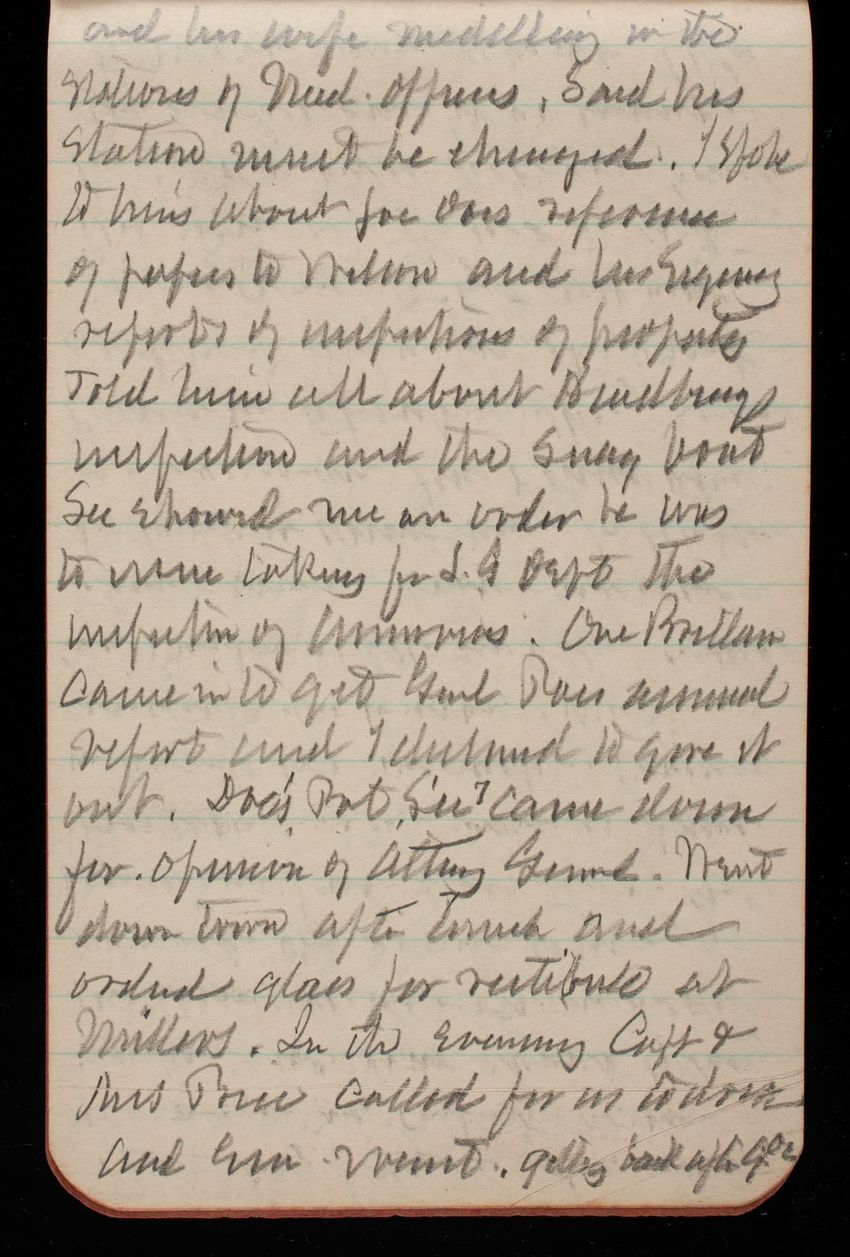 and his wife meddling in the
stations of Med. officers. Said his
station must be changed. I spoke
to him about Joe Does reference
of papers to Wilson and his
reports of inspections of property
Told him all about
inspection and the Snag boat
Sec showed me an order he was
to issue taking for I. G Dept the
inspection of Armories. One
came in to get Genl annual
report and I declined to give it
out. came down
for opinion of Attny Genrl. Went
down town after lunch and
orderd glass for vestibule at
. In the evening Capt &
Mrs Price called for us to
and went. getting back after